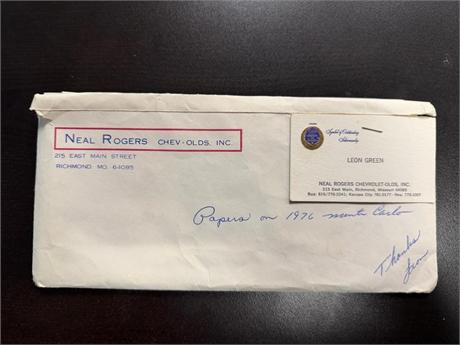 NEAL ROGERS CHEV-OLDS, INC.
215 EAST MAIN STREET
RICHMOND MO. 64085
Symbol of Outstanding
Salesmanship
LEON GREEN
NEAL ROGERS CHEVROLET-OLDS, INC.
215 East Main, Richmond, Missouri 64085
Bus: 816/776-2241; Kansas City 781-3177
Papers on 1976 Monte Carlo
Thanks
Leon